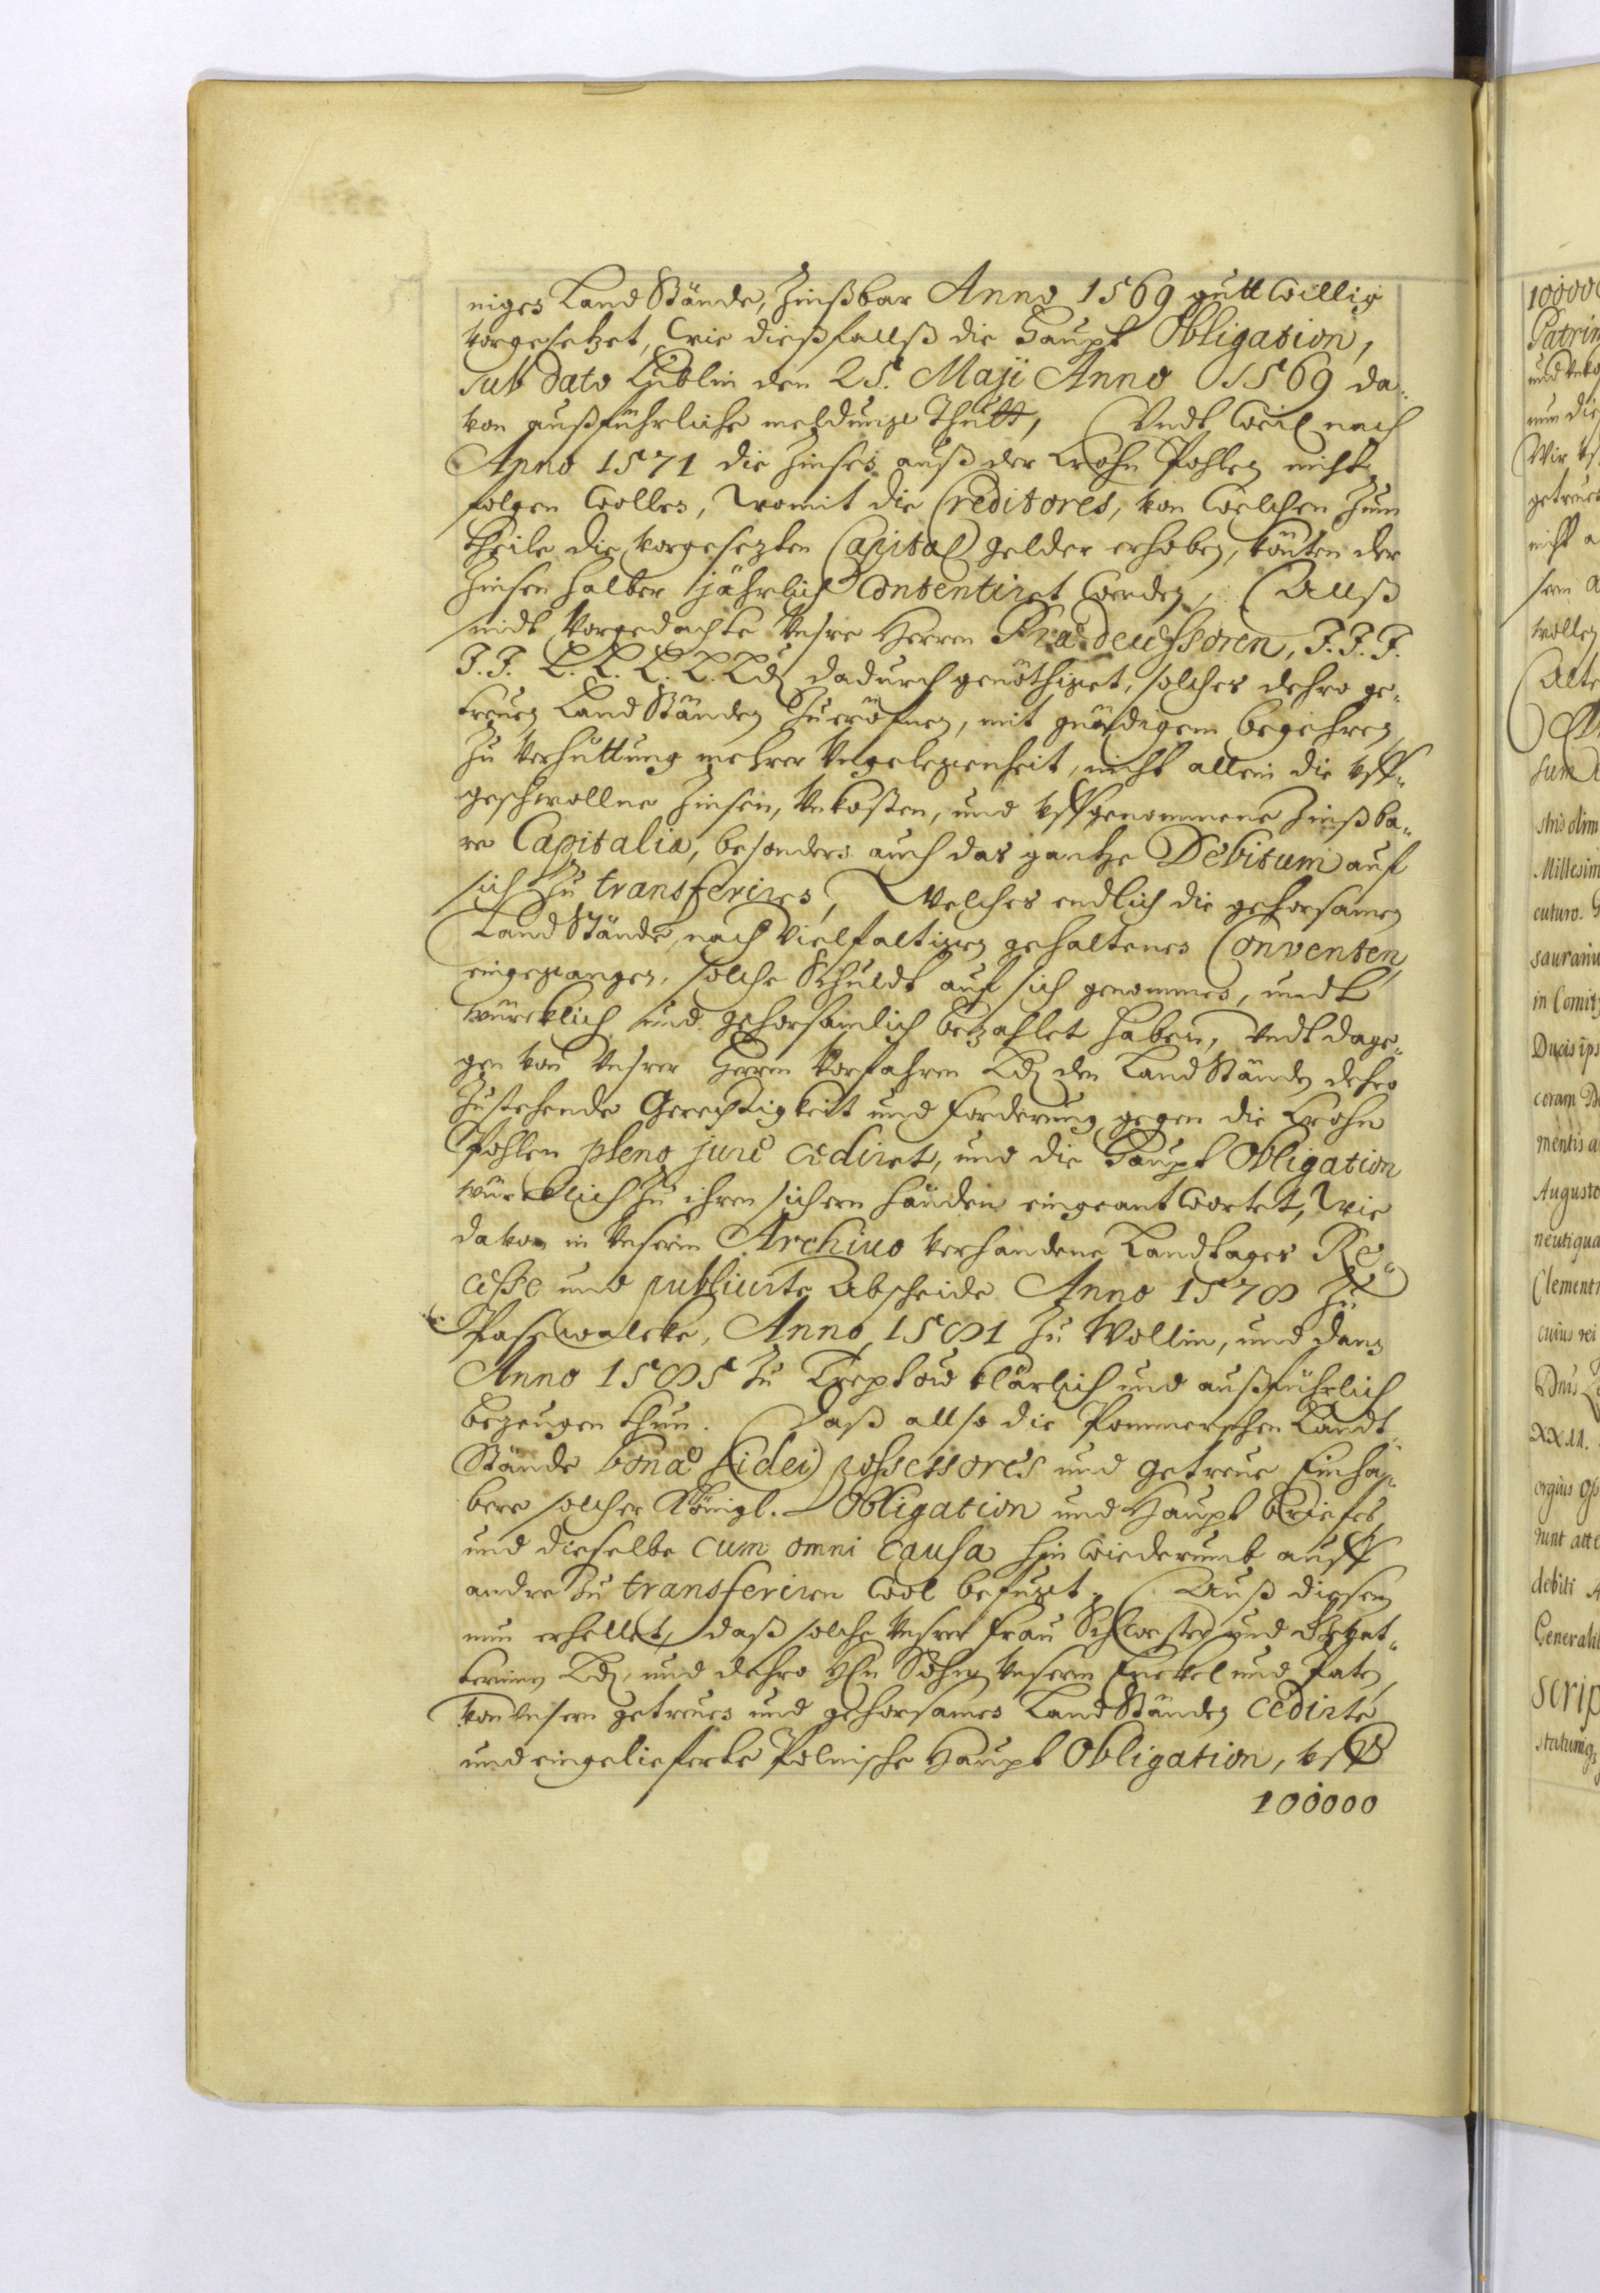 niger Land Stände, Zinßbar Anno 1569 gutt willig
vorgesetzet, wie dießfallß die Haupt Obligation,
sub dato Lüblin den 25. Maji Anno 1569 da-
von außführliche meldunge thutt, Vndt weil nach
Anno 1571 die Zinsen auß der Krohn Pohlen nicht
folgen wollen, womit die Creditores, von welchen Zum
theile die vorgesezten Capital gelder erhoben, könten der
Zinsen halber jährlich Contentiret werden, Allß
sindt Vorgedachte Vnsre Herren Prædeceßoren, J. J. J.
J. J. L. L. L. L. Ld. dadurch genöthiget, solches dehro ge-
treuen Land Ständen Zueröfnen, mit gnädigem begehren
Zu Verhüttung mehrer Vngelegenheit, nicht allein die vff-
geschwollne Zinsen, Vnkosten, und vffgenommene Zinßba-
re Capitalia, besonders auch das gantze Debitum auf
sich Zu transferiren, Welches endlich die gehorsamen
Land Stände, nach Vielfaltigen gehaltenen Conventen,
eingegangen, solche Schuldt auf sich genommen, undt
würcklich und gehorsamlich bezahlet haben, Vndt dage-
gen von Vnsrer Herren Vorfahren Ld. den Land Ständen dehro
Zustehende Gerechtigkeit und Forderung gegen die Krohn
Pohlen pleno jure cediret, und die Haupt Obligation
würcklich Zu ihren sichern händen eingeantwortet, Wie
davon in Vnserm Archivo Verhandene Landtages Re-
ceße und publicirte Abscheide Anno 1578 Zu
Pasewalcke, Anno 1581 Zu Wollin, und dann
Anno 1585 Zu Treptow klärlich und außführlich
bezeugen thun. Daß allso die Pommerschen Landt
Stände bonæ fidei poßessores und getreue Einha-
bere solcher Königl. Obligation und Haupt Briefes
und dieselbe cum omni causa hinwiederumb auff
andre Zu transferiren wol befugt. Auß diesem
nun erhellet, daß solche Vnsrer Frau Schwester und Gevat-
terinnen Ld. und dehro Hln Sohn, Vnserm Enckel und Paten
von Vnsern getreuen und gehorsamen Land Ständen cedirte
und eingelieferte Polnische Haupt Obligation, vff
100000
100000
Patrim
nun die
Wir
getreu
nicht a
sern
wollen
Alte
sum
stris olim
Millesim
cuturo. G
sauraniu
in Comit
Ducis ips
coram D
mentis a
Augusto
neutiqua
Clement
cuius rei
Dnus
XX 11.
orgius Os
runt atte
debiti A
Generali
scrip
statumq